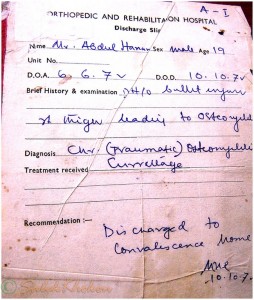 A - I
ORTHOPEDIC AND REHABILITAON HOSPITAL
Discharge Slip
Name Mr. Abdul Hanan Sex male Age 19
Unit No.
D.O.A. 6.6.72 D.O.D. 10.10.72
Brief History & examination H/o bullet injury
rt thigh leading to Osteomyeli
Diagnosis Chr. (traumatic) Osteomyeliti
Treatment received Currettage
Recommendation :—
Discharged to
Convalescence home
10.10.7